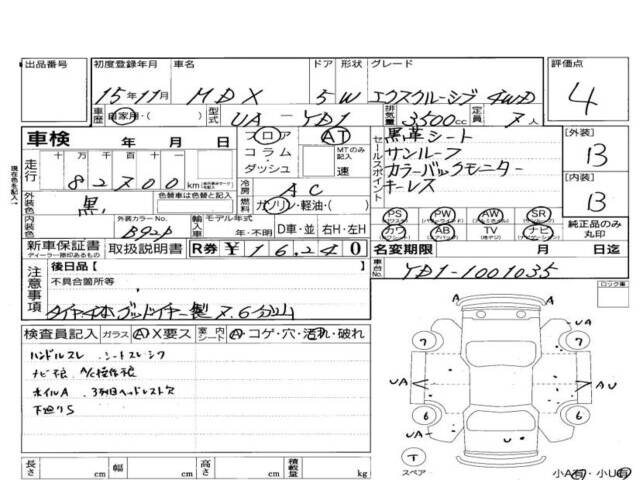 出品番号 初度登録年月 車名 ドア 形状 グレード 評価点
15年11月 MDX 5 W エクスクルーシブ 4WD 4
車歴 自家用・( ) 型式 UA - YD1 排気量 3500cc 定員 7人
車検 年 月 日 フロア AT 黒革シート [外装]
走行 十万 千 百 十 コラム・ダッシュ MTのみ記入 速 サンルーフ B
82700km 冷房 AC セールスポイント カラーバックモニター
外装色 黒 色替車は色替と記入 燃料 ガソリン・軽油・( ) キーレス [内装]
現在色を記入 B
内装色 外装カラーNo. B92P 輸入車 モデル年式 年・不明 D車・並 右H・左H
PS PW AW SR
カワ AB TV ナビ 純正品のみ丸印
新車保証書 取扱説明書 R券 ¥16240 名変期限 月 日迄
ディーラー捺印あるもの
後日品[ ] 車台No. YD1-1001035
注意事項 不具合箇所等
タイヤ4本グッドイヤー製 7.6分山
検査員記入 ガラス A X要ス 室内シート A・コゲ・穴・汚れ・破れ
ハンドルスレ シートスレ シワ
ナビ
ホイルA 3列目ヘッドレスト欠
下廻りS
ロック車
A
A
7 UA 7
UA AU
6 6
UA U
T
スペア
長さ cm 幅 cm 高さ cm 積載量 kg
小A有・小U有